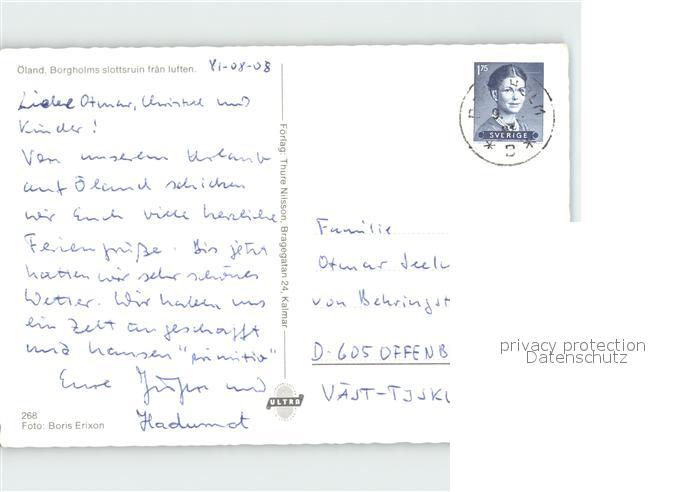 Öland. Borgholms slottsruin från luften.
81-08-08
Liebe Otmar, Christel und
Kinder!
Von unserem Urlaub
auf Öland schicken
wir Euch viele herzliche
Feriengrüße. Bis jetzt
hatten wir sehr schönes
Wetter. Wir haben uns
ein Zelt angeschafft
und hausen "primitiv"
Eure Jürgen und
Hadumot
268
Foto: Boris Erixon
Förlag: Thure Nilsson, Bragegatan 24, Kalmar
ULTRA
1.75
SVERIGE
Familie
Otmar
von Behringst
D-605 OFFENB
VÄST-TYSKL
privacy protection
Datenschutz